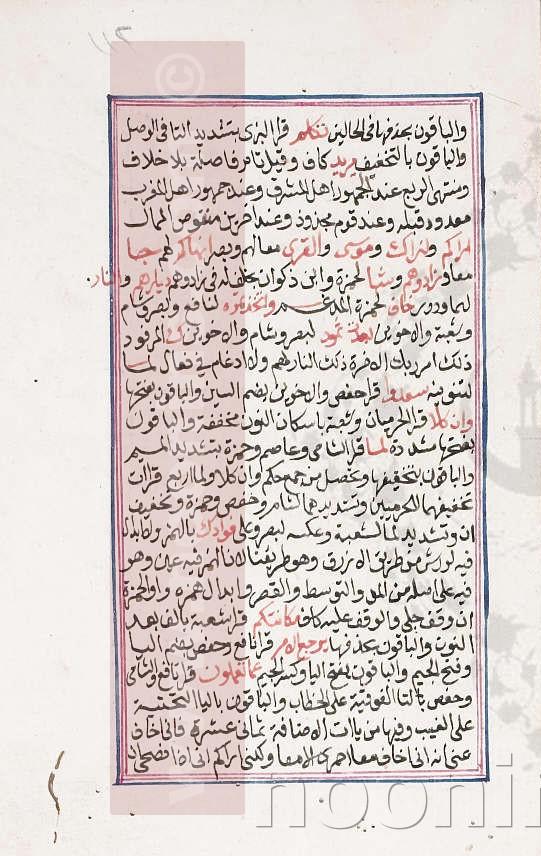 ١١٢
والباقون بحذفها في الحالين تكلم قرا البزى بتشديد التا في الوصل
والباقون بالتخفيف يريد كاف وقيل تام فاصلة بلا خلاف
ومنتهى الربع عند الجمهور اهل المشرق وعند جمهور اهل المغرب
معدود قبله وعند قوم مجذوذ وعند اخرين منقوص الممال
لنراك وموسى والقرى معا لهم وبصر
معا زادوهم وشا لحمزة وابن ذكوان بخلف له في زادوهم ديارهم والنار
لهما ودورى خاف لحمزة المدغم واتخذتموه لنافع وبصر وشام
وشعبة والاخوين بعدت ثمود لبصر وشام والاخوين ك المرفود
ذلك امر ربك الاخرة ذلك النار لهم ولا ادغام في فعال لما
لتنوينه سعدوا قرا حفص والاخوين بضم السين والباقون بفتحها
وان كلا قرا الحرميان وشعبة باسكان النون مخففة والباقون
بفتحها مشددة لما قرا الشامى وعاصم وحمزة بتشديد الميم
والباقون بتخفيفها وتحصل من جمع حكم وان كلا ولما اربع قراات
تخفيفهما للحرميين وتشديدهما لشام وحفص وحمزة وتخفيف
ان وتشديد لما لشعبة وعكسه لبصر وعلى فوادك بالهمز ولا ابدال
فيه لورش من طريق الازرق وهو طريقنا لان الهمز فيه عين وهو
فيه على اصله من المد والتوسط والقصر وابدال همزه واوا لحمزة
ان وقف جلى والوقف عليه كاف مكانتكم قرا شعبة بالف بعد
النون والباقون بحذفها يرجع الامر قرا نافع وحفص بضم اليا
وفتح الجيم والباقون بفتح اليا وكسر الجيم عما تعملون قرا نافع وشامى
وحفص بالتا الفوقية على الخطاب والباقون باليا التحتية
على الغيب وفيها من ياات الاضافة ثمانى عشرة فانى اخاف
عنى انه انى اخاف معا اجرى الا معا ولكنى اراكم انى اذا نصحى ان
noonli